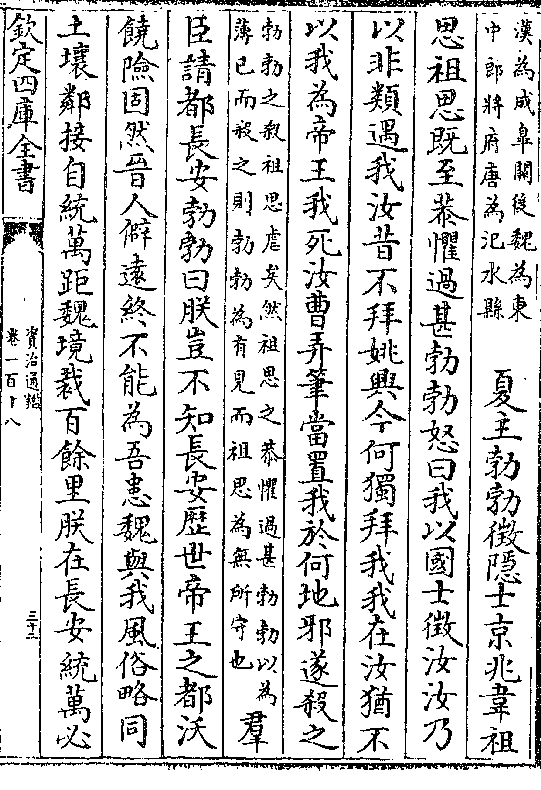 漢為成臯關後魏為東
中郎將府唐為汜水縣
夏主勃勃徵隱士京兆韋祖
思祖思既至恭懼過甚勃勃怒曰我以國士徵汝汝乃
以非類遇我汝昔不拜姚興今何獨拜我我在汝猶不
以我為帝王我死汝曹弄筆當置我於何地邪遂殺之
勃勃之殺祖思虐矣然祖思之恭懼過甚勃勃以為
薄已而殺之則勃勃為有見而祖思為無所守也
羣
臣請都長安勃勃曰朕豈不知長安歷世帝王之都沃
饒險固然晉人僻遠終不能為吾患魏與我風俗略同
土壤鄰接自統萬距魏境裁百餘里朕在長安統萬必
欽定四庫全書
資治通鑑
卷一百十八
三十三